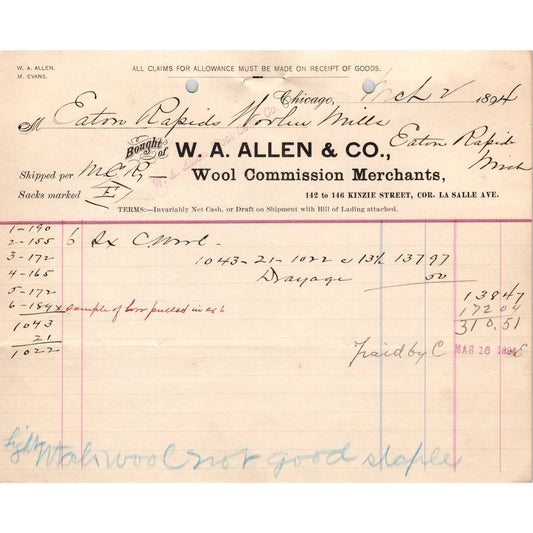 W. A. ALLEN.
M. EVANS.
ALL CLAIMS FOR ALLOWANCE MUST BE MADE ON RECEIPT OF GOODS.
Chicago, Mch 2 1894
M Eaton Rapids Woolen Mills
Eaton Rapids
Mich
Bought of W. A. ALLEN & CO.,
Wool Commission Merchants,
Shipped per M.C.R.
Sacks marked E
142 to 146 KINZIE STREET, COR. LA SALLE AVE.
TERMS:—Invariably Net Cash, or Draft on Shipment with Bill of Lading attached.
1-190
2-155 6 Sx C. Wool.
3-172 1043-21-1022 c 13½ 137 97
4-165 Drayage 50
5-172 138 47
6-189 x Sample of low pulled in sx 6 172 04
1043 310.51
21
1022
Paid by C MAR 16 1894
Light
wool not good staple